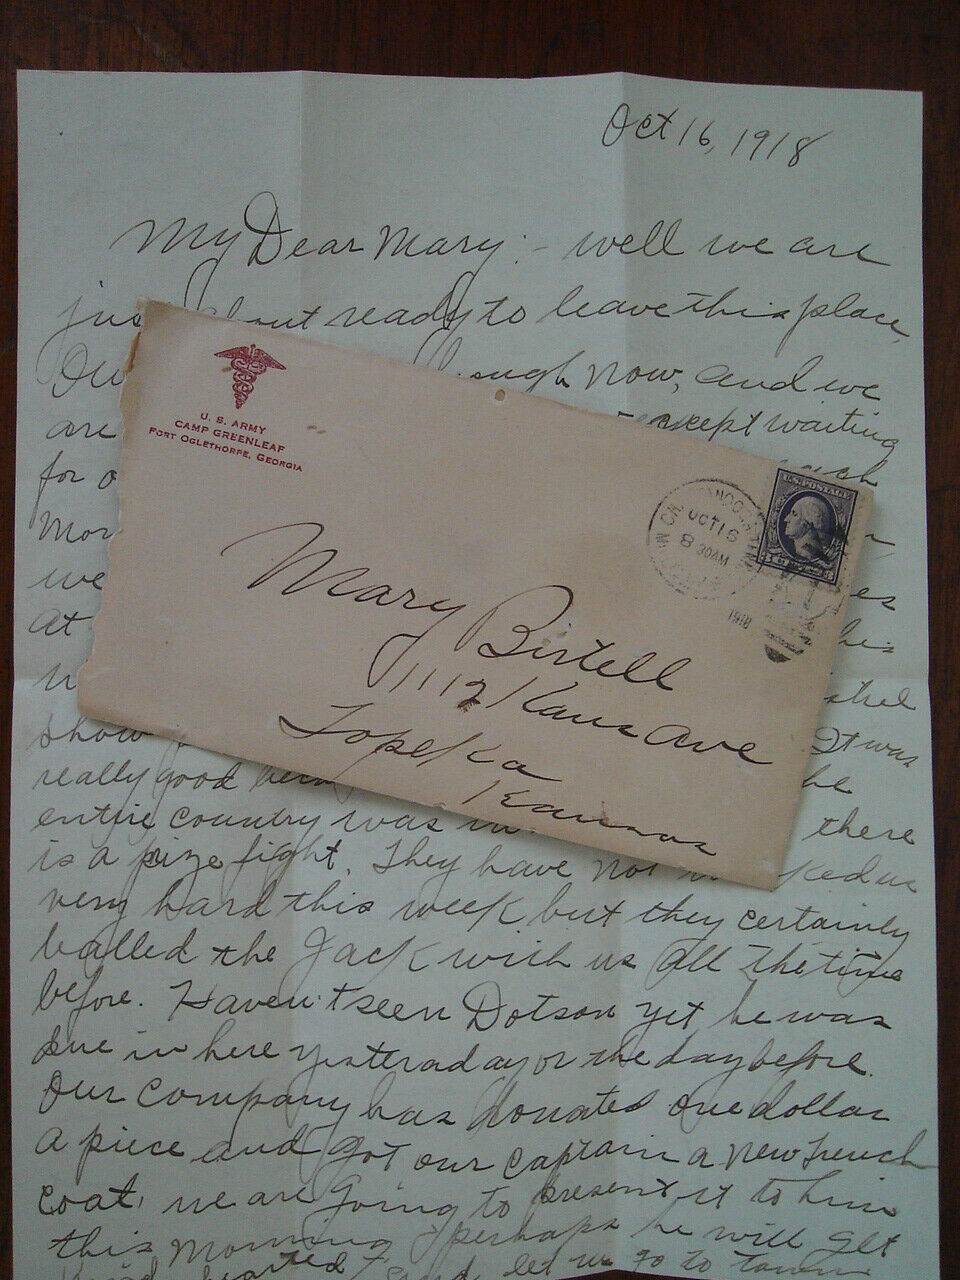 Oct 16, 1918
My Dear Mary: - well we are
ready to leave this place,
now, and we
are except waiting
for
we
At
show It was
really good
entire country was there
is a prize fight. They have not
very hard this week but they certainly
balled the Jack with us all the time
before. Haven't seen Dotson yet, he was
due in here yesterday or the day before.
Our Company has donated one dollar
a piece and got our captain a new Trench
coat, we are going to present it to him
this morning & perhaps he will get
hearted & let us go to town
U. S. ARMY
CAMP GREENLEAF
FORT OGLETHORPE, GEORGIA
OCT 16
8 30AM
1918
U.S. POSTAGE
Mary Bistell
1112 Kans Ave
Topeka
Kansas